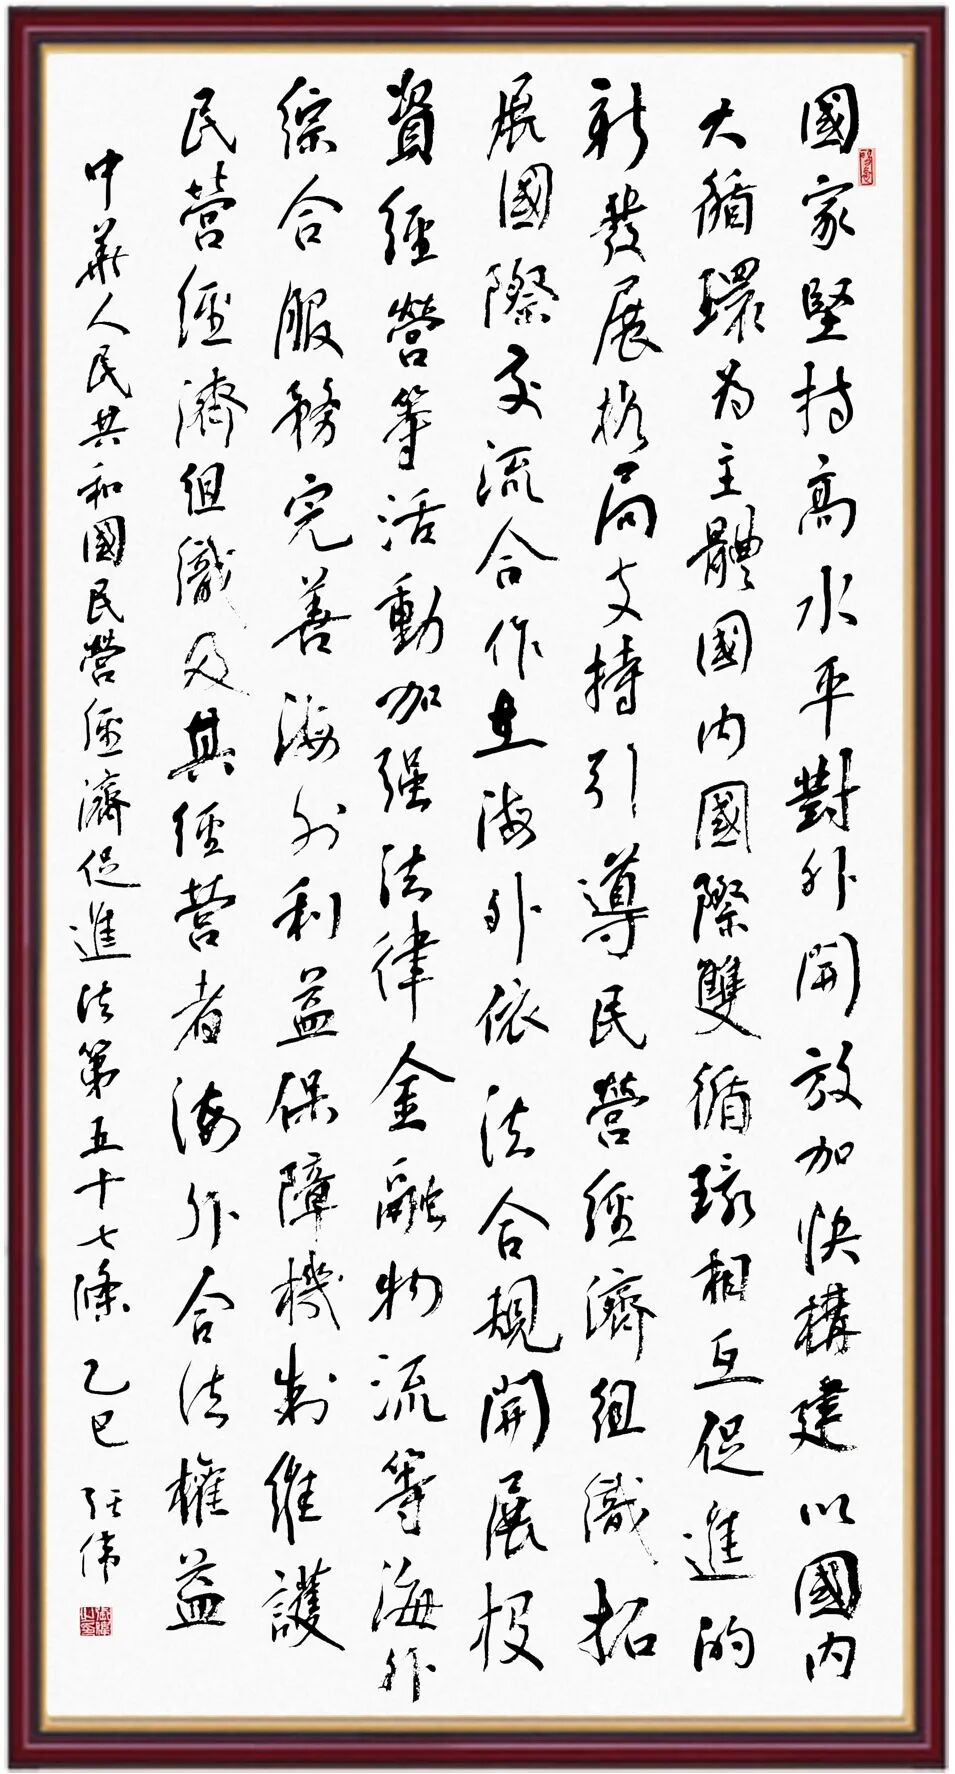 國家堅持高水平對外開放加快構建以國內
大循環为主體國内國際雙循環相互促進的
新發展格局支持引導民營經濟組織拓
展國際交流合作在海外依法合規開展投
資經營等活動加强法律金融物流等海外
綜合服務完善海外利益保障機制維護
民營經濟組織及其經營者海外合法權益
中華人民共和國民營經濟促進法第五十七條 乙巳 張偉